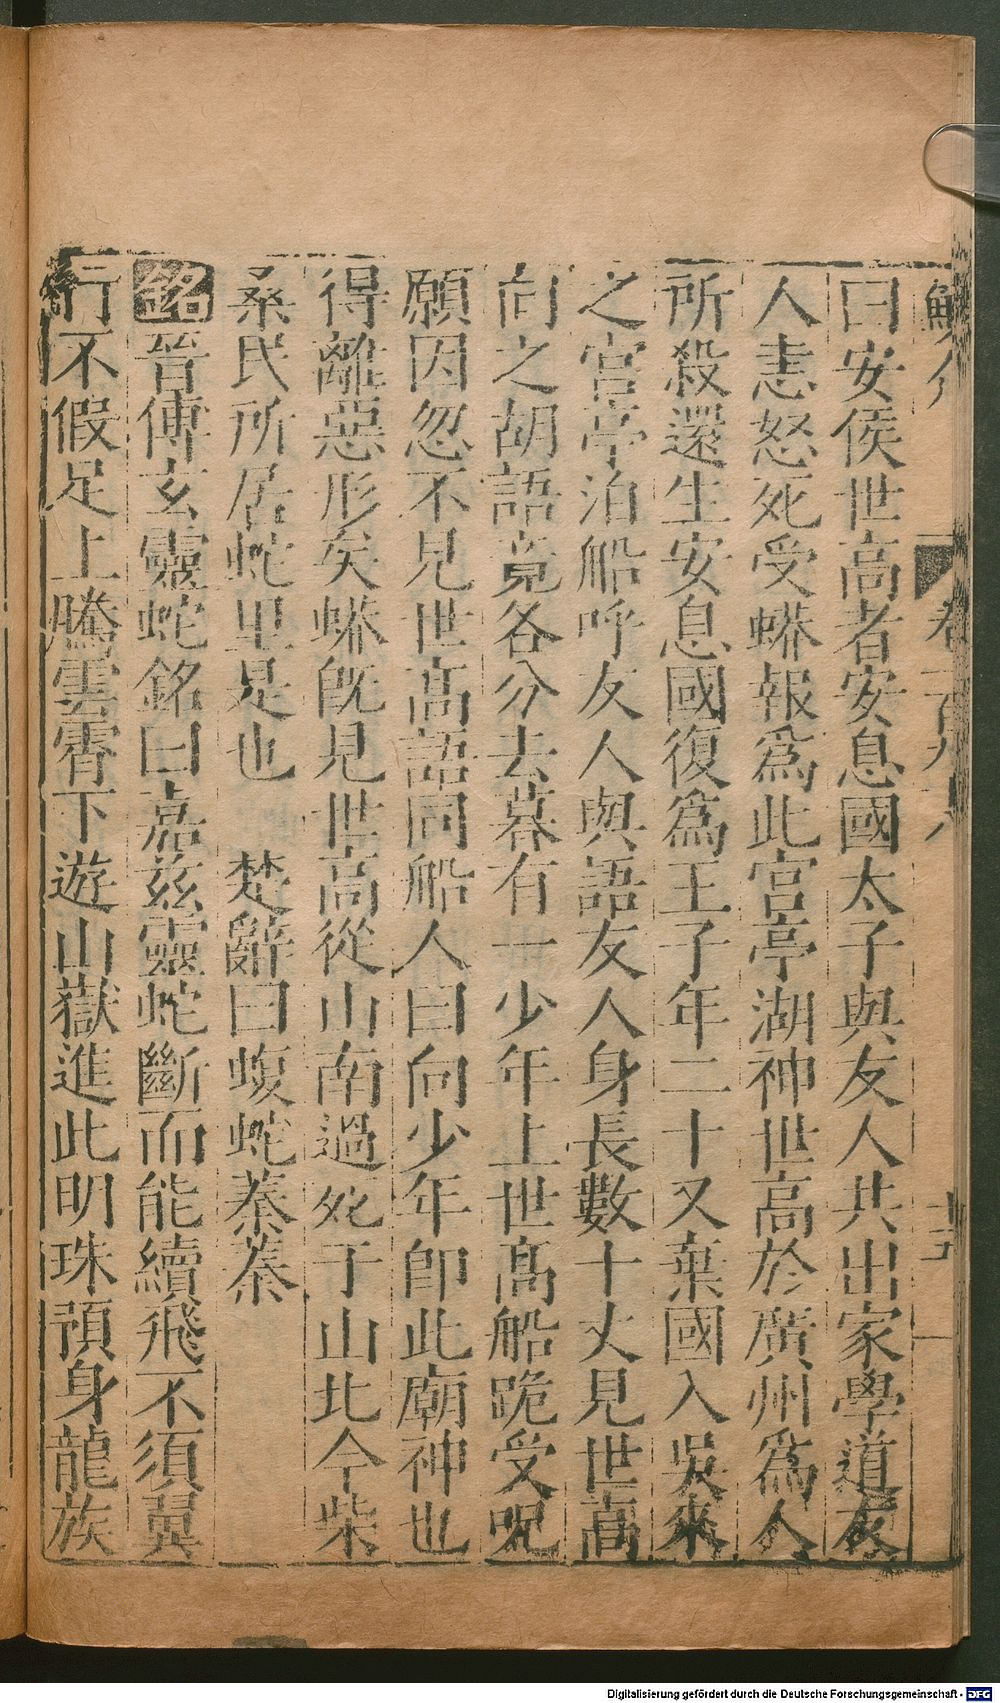 鱗介 卷一百〇八 十五
曰安侯世高者安息國太子與友人共出家學道友
人恚怒死受蟒報爲此宮亭湖神世高於廣州爲人
所殺還生安息國復爲王子年二十又棄國入吳來
之宮亭泊船呼友人與語友人身長數十丈見世高
向之胡語竟各分去暮有一少年上世高船跪受呪
願因忽不見世高語同船人曰向少年卽此廟神也
得離惡形矣蟒旣見世高從山南過死于山北今柴
桑民所居蛇里是也 楚辭曰蝮蛇蓁蓁
銘晉傅玄靈蛇銘曰嘉茲靈蛇斷而能續飛不須翼
行不假足上騰雲霄下遊山嶽進此明珠預身龍族
Digitalisierung gefördert durch die Deutsche Forschungsgemeinschaft - DFG